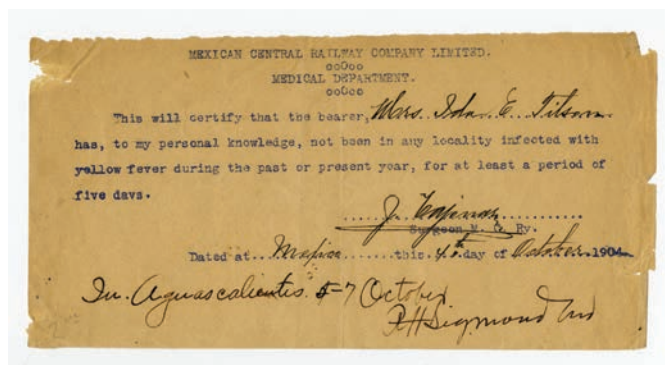 MEXICAN CENTRAL RAILWAY COMPANY LIMITED.
ooOoo
MEDICAL DEPARTMENT.
ooOoo
This will certify that the bearer, Mrs. Ida E. Tilson
has, to my personal knowledge, not been in any locality infected with
yellow fever during the past or present year, for at least a period of
five days.
J.
Surgeon M. C. Ry.
Dated at...Mexico........this.4th.day of October.1904
In Aguascalientes 5-7 October
RHSigmond MD